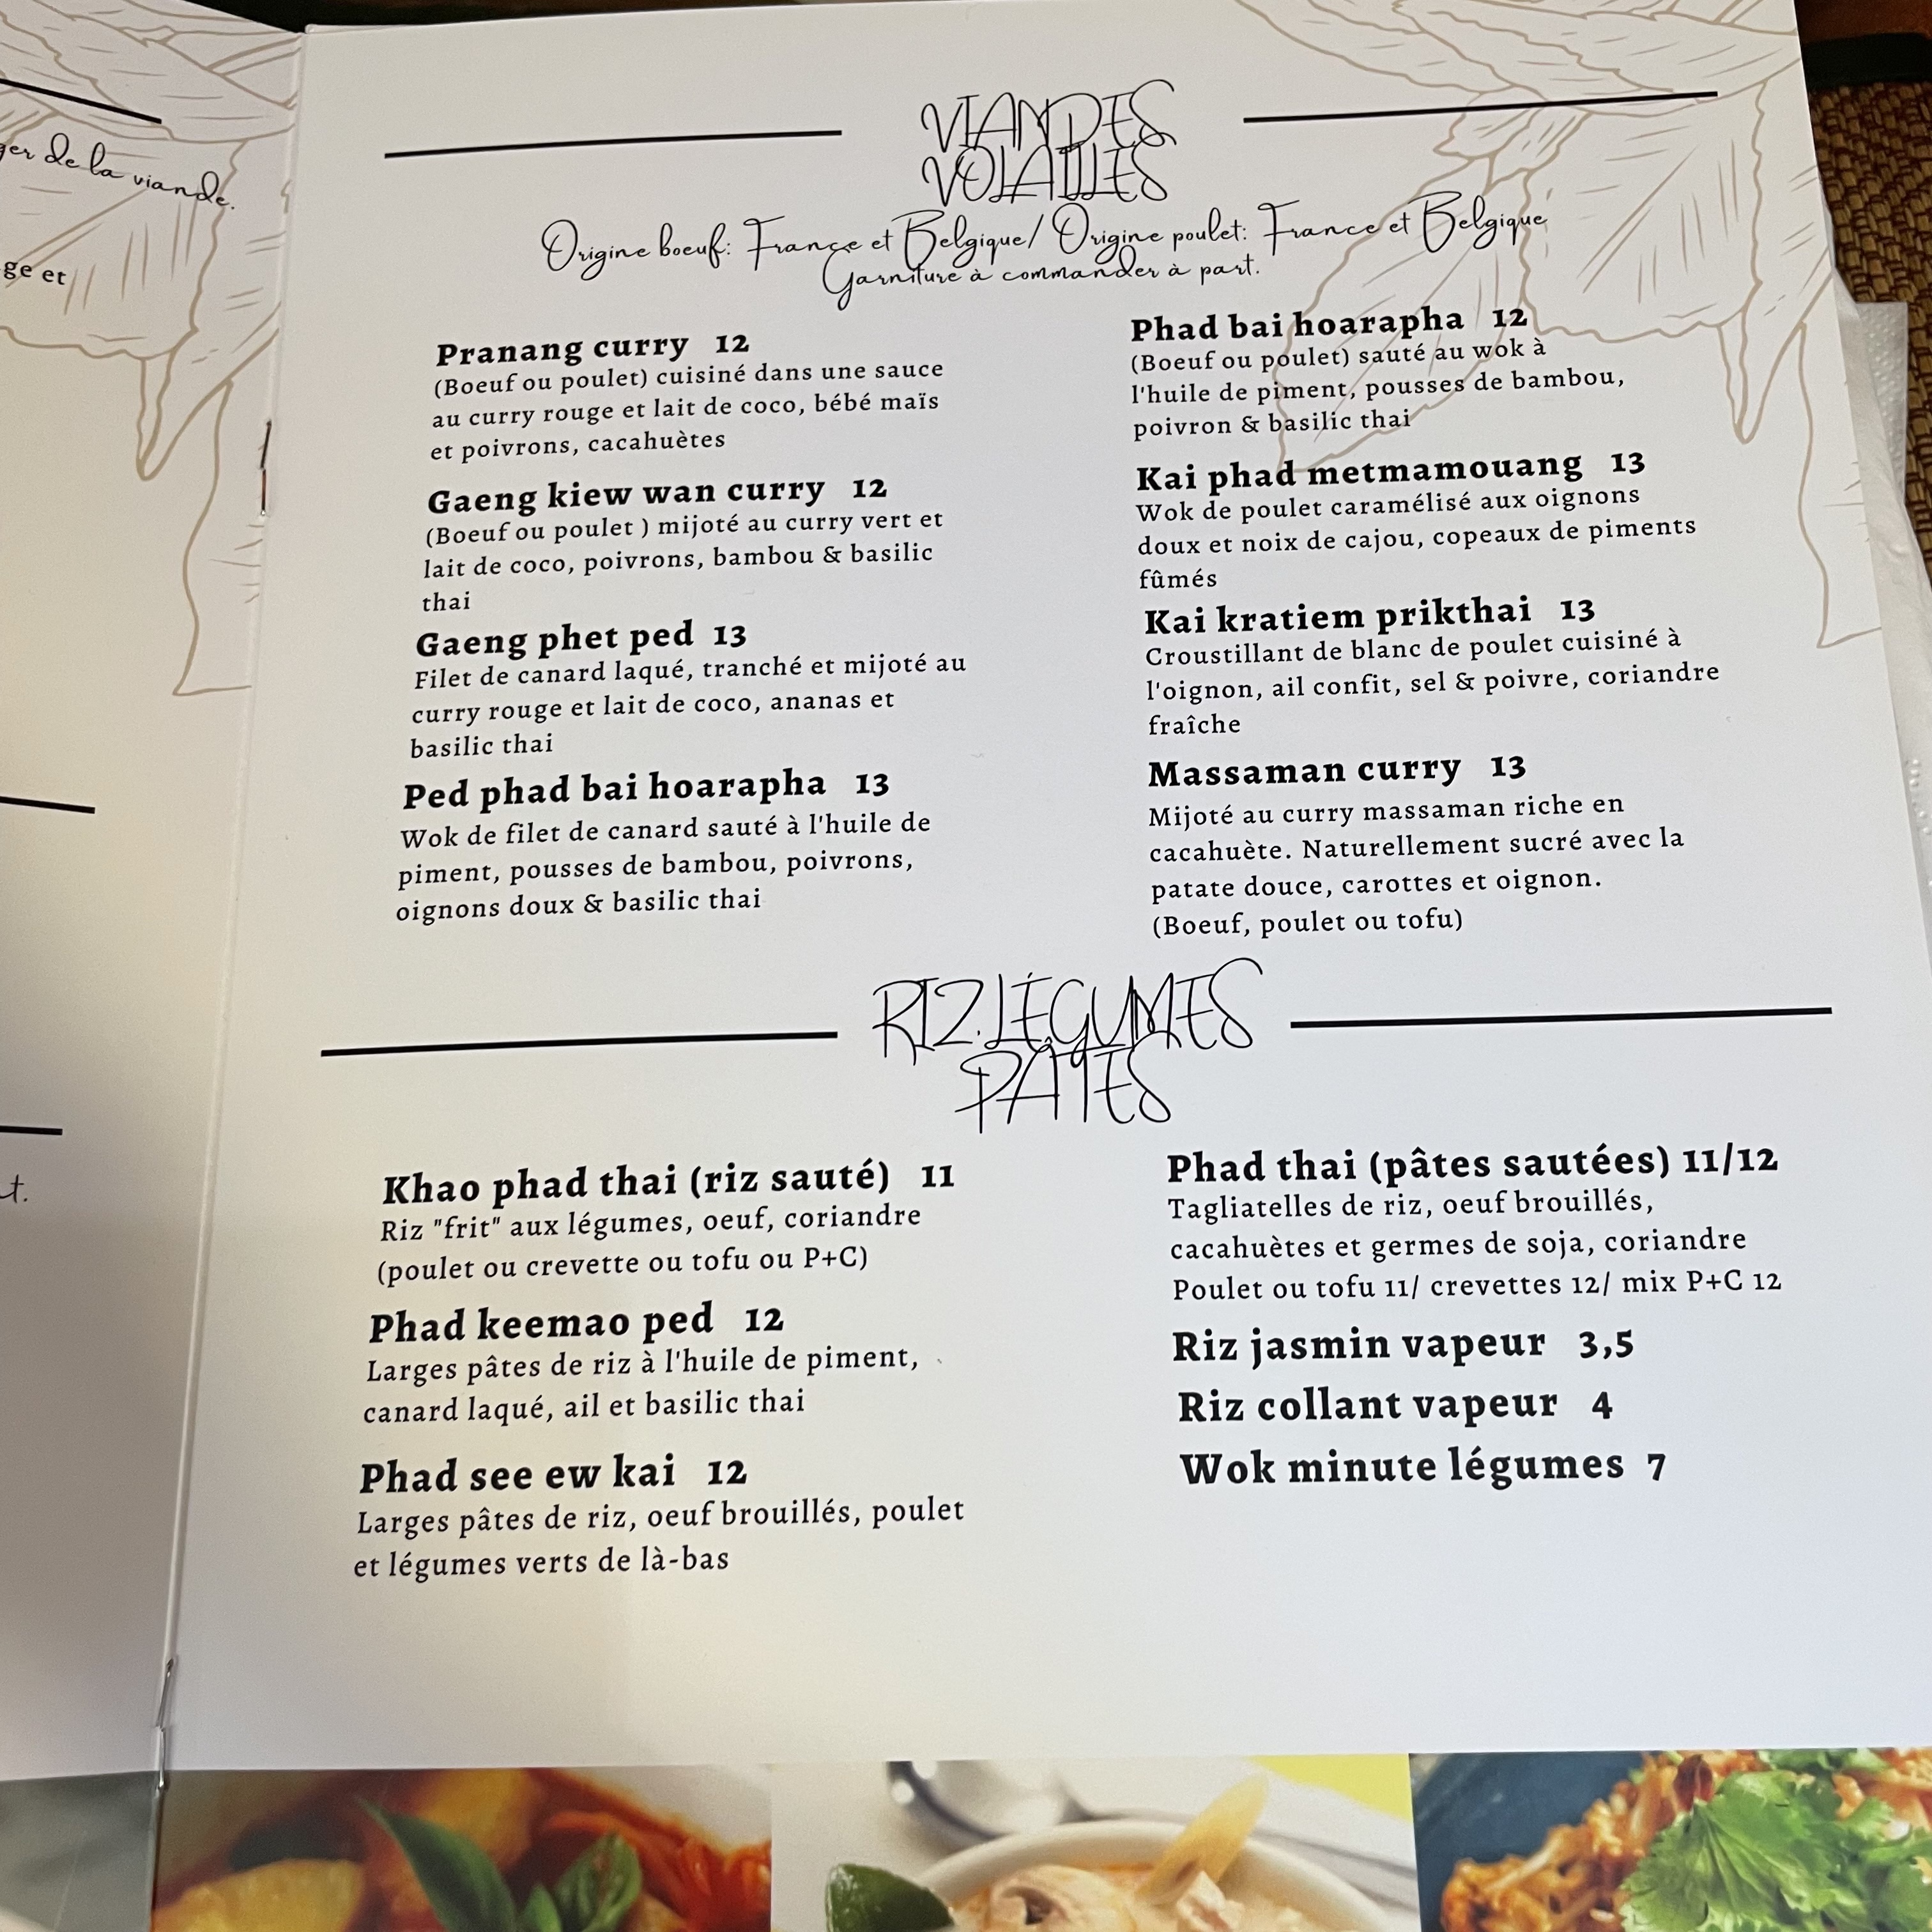 de la viande.
ge et
t.
VIANDES
VOLAILLES
Origine boeuf: France et Belgique/ Origine poulet: France et Belgique
Garniture à commander à part.
Pranang curry 12
(Boeuf ou poulet) cuisiné dans une sauce
au curry rouge et lait de coco, bébé maïs
et poivrons, cacahuètes
Gaeng kiew wan curry 12
(Boeuf ou poulet ) mijoté au curry vert et
lait de coco, poivrons, bambou & basilic
thai
Gaeng phet ped 13
Filet de canard laqué, tranché et mijoté au
curry rouge et lait de coco, ananas et
basilic thai
Ped phad bai hoarapha 13
Wok de filet de canard sauté à l'huile de
piment, pousses de bambou, poivrons,
oignons doux & basilic thai
Phad bai hoarapha 12
(Boeuf ou poulet) sauté au wok à
l'huile de piment, pousses de bambou,
poivron & basilic thai
Kai phad metmamouang 13
Wok de poulet caramélisé aux oignons
doux et noix de cajou, copeaux de piments
fûmés
Kai kratiem prikthai 13
Croustillant de blanc de poulet cuisiné à
l'oignon, ail confit, sel & poivre, coriandre
fraîche
Massaman curry 13
Mijoté au curry massaman riche en
cacahuète. Naturellement sucré avec la
patate douce, carottes et oignon.
(Boeuf, poulet ou tofu)
RIZ.LÉGUMES
PÂTES
Khao phad thai (riz sauté) 11
Riz "frit" aux légumes, oeuf, coriandre
(poulet ou crevette ou tofu ou P+C)
Phad keemao ped 12
Larges pâtes de riz à l'huile de piment,
canard laqué, ail et basilic thai
Phad see ew kai 12
Larges pâtes de riz, oeuf brouillés, poulet
et légumes verts de là-bas
Phad thai (pâtes sautées) 11/12
Tagliatelles de riz, oeuf brouillés,
cacahuètes et germes de soja, coriandre
Poulet ou tofu 11/ crevettes 12/ mix P+C 12
Riz jasmin vapeur 3,5
Riz collant vapeur 4
Wok minute légumes 7